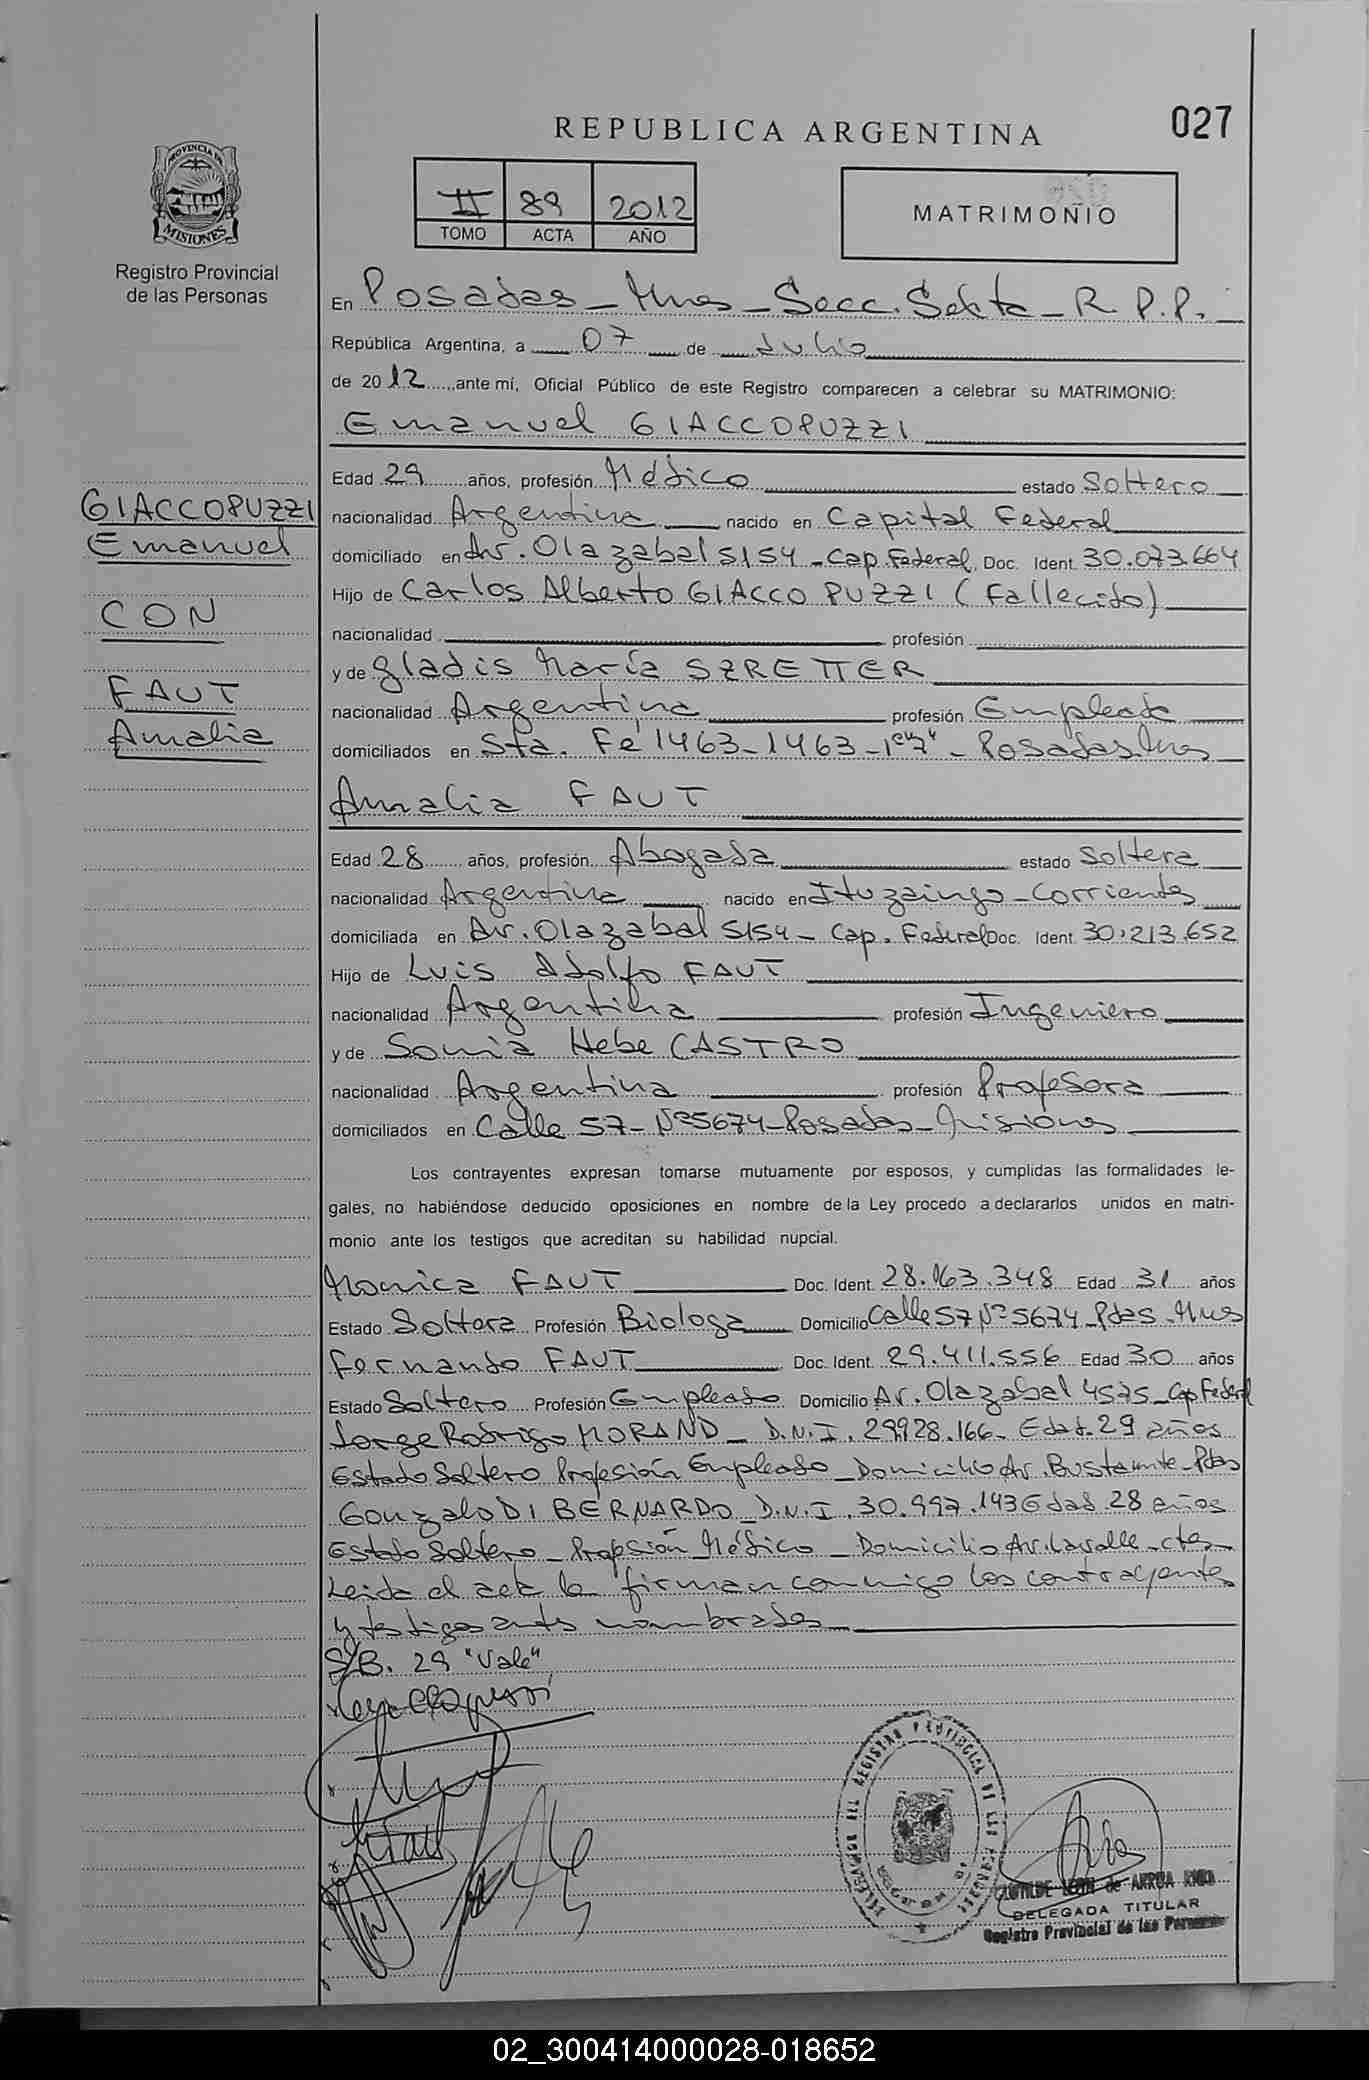 REPUBLICA ARGENTINA
027
PROVINCIA DE
MISIONES
Registro Provincial
de las Personas
II 89 2012
TOMO ACTA AÑO
MATRIMONIO
En Posadas - Mnes - Secc. Sexta - R.P.P.
República Argentina, a 07 de Julio
de 2012, ante mí, Oficial Público de este Registro comparecen a celebrar su MATRIMONIO:
Emanuel GIACCOPUZZI
Edad 29 años, profesión Médico estado Soltero
nacionalidad Argentina nacido en Capital Federal
domiciliado en Av. Olazabal 5154 - Cap. Federal, Doc. Ident. 30.073.664
Hijo de Carlos Alberto GIACCOPUZZI (Fallecido)
nacionalidad profesión
y de Gladis María SZRETTER
nacionalidad Argentina profesión Empleada
domiciliados en Sta. Fé 1463-1463- - Posadas Mnes
Amalia FAUT
Edad 28 años, profesión Abogada estado Soltera
nacionalidad Argentina nacido en Ituzaingo - Corrientes
domiciliada en Av. Olazabal 5154 - Cap. Federal Doc. Ident. 30.213.652
Hijo de Luis Adolfo FAUT
nacionalidad Argentina profesión Ingeniero
y de Sonia Hebe CASTRO
nacionalidad Argentina profesión Profesora
domiciliados en Calle 57 - Nº 5674 - Posadas - Misiones
GIACCOPUZZI
Emanuel
CON
FAUT
Amalia
Los contrayentes expresan tomarse mutuamente por esposos, y cumplidas las formalidades le-
gales, no habiéndose deducido oposiciones en nombre de la Ley procedo a declararlos unidos en matri-
monio ante los testigos que acreditan su habilidad nupcial.
Monica FAUT Doc. Ident. 28.163.348 Edad 31 años
Estado Soltera Profesión Biologa Domicilio Calle 57 Nº 5674 - Pdas - Mnes
Fernando FAUT Doc. Ident. 29.411.556 Edad 30 años
Estado Soltero Profesión Empleado Domicilio Av. Olazabal 4575 - Cap Federal
Jorge Rodrigo MORAND - D.N.I. 29928.166 - Edad 29 años
Estado Soltero Profesión Empleado - Domicilio Av. Bustamante - Pdas
Gonzalo DI BERNARDO - D.N.I. 30.997.143 Edad 28 años
Estado Soltero - Profesión Médico - Domicilio Av. Lavalle - ctes -
Leida el acta la firman conmigo los contrayentes
y testigos antes nombrados
S/B. 29 "Vale"
DELEGACION DEL REGISTRO PROVINCIAL DE LAS PERSONAS
CLOTILDE LEON de ARRUA
DELEGADA TITULAR
Registro Provincial de las Personas
02_300414000028-018652